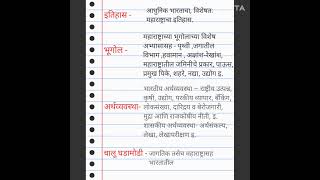 आधुनिक भारताचा, विशेषतः
इतिहास - महाराष्ट्राचा इतिहास.
महाराष्ट्राच्या भूगोलाच्या विशेष
अभ्यासासह - पृथ्वी ,जगातील
भूगोल - विभाग ,हवामान , अक्षांश-रेखांश,
महाराष्ट्रातील जमिनीचे प्रकार, पाऊस,
प्रमुख पिके, शहरे, नद्या, उद्योग इ.
भारतीय अर्थव्यवस्था – राष्ट्रीय उत्पन्न,
कृषी, उद्योग, परकीय व्यापार, बँकिंग,
अर्थव्यवस्था- लोकसंख्या, दारिद्र्य व बेरोजगारी,
मुद्रा आणि राजकोषीय नीती, इ.
शासकीय अर्थव्यवस्था- अर्थसंकल्प,
लेखा, लेखापरीक्षण इ.
चालू घडामोडी - जागतिक तसेच महाराष्ट्रासह
भारतातील